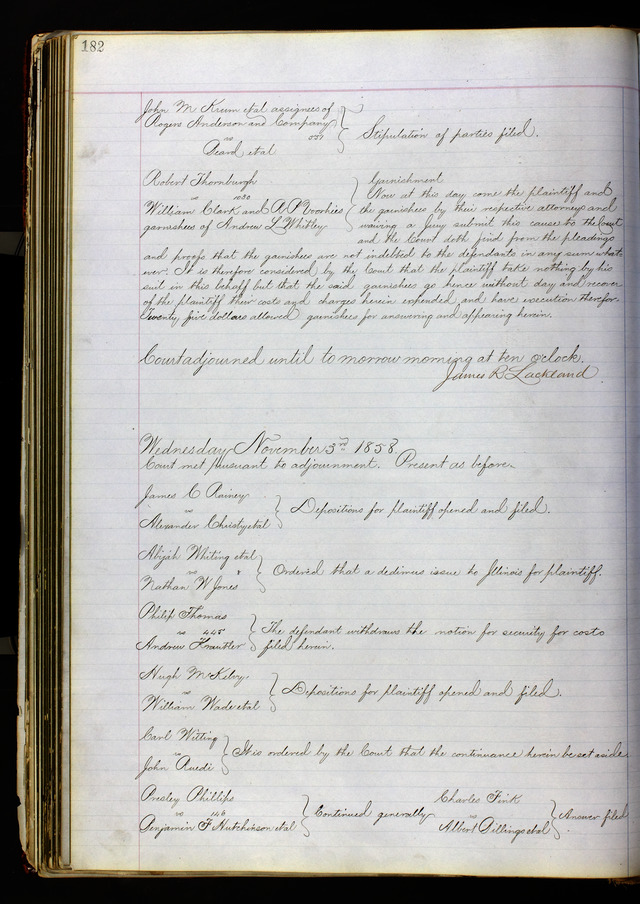 182
John M Krum etal assignees of
Rogers Anderson and Company
vs
Stipulation of parties filed.
Beard etal
Robert Thornburgh
vs 1030
William Clark and A P Voorhies
garnishees of Andrew L Whitley
Garnishment
Now at this day come the plaintiff and
the garnishees by their respective attorneys and
waiving a Jury submit this cause to the Court
and the Court doth find from the pleadings
and proofs that the garnishees are not indebted to the defendants in any sum what-
ever. It is therefore considered by the Court that the plaintiff take nothing by his
suit in this behalf but that the said garnishees go hence without day and recover
of the plaintiff their costs and charges herein expended and have execution therefor-
Twenty five dollars allowed garnishees for answering and appearing herein.
Court adjourned until to morrow morning at ten oclock.
James R Lackland
Wednesday November 3rd 1858.
Court met pursuant to adjournment. Present as before.
James C Rainey
vs
Alexander Christy etal
Depositions for plaintiff opened and filed.
Abijah Whiting etal
vs
Nathan W Jones
Ordered that a dedimus issue to Illinois for plaintiff.
Philip Thomas
vs 445
Andrew
The defendant withdraws the motion for security for costs
filed herein.
Hugh McKilvy
vs
William Wade etal
Depositions for plaintiff opened and filed.
Carl Witting
vs
John Ruedi
It is ordered by the Court that the continuance herein be set aside
Presley Phillips
vs 146
Benjamin F Hutchinson etal
Continued generally
Charles Fink
vs
Albert Dillings etal
Answer filed